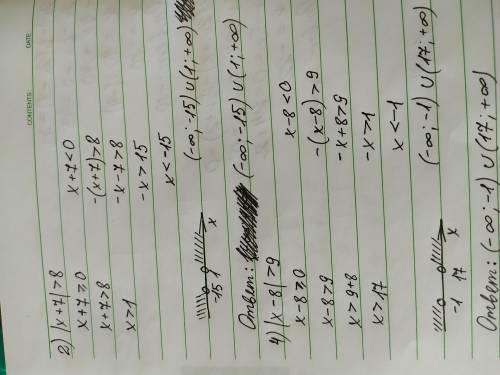 CONTENTS:
DATE
2) |x+7|>8
x+7≥0
x+7<0
x+7>8
-(x+7)>8
x>1
-x-7>8
-x>15
x<-15
-15 1 x
(-∞;-15)∪(1;+∞)
Ответ: (-∞;-15)∪(1;+∞)
4) |x-8|>9
x-8≥0
x-8<0
x-8>9
-(x-8)>9
x>9+8
-x+8>9
x>17
-x>1
x<-1
-1 17 x
(-∞;-1)∪(17;+∞)
Ответ: (-∞;-1)∪(17;+∞)